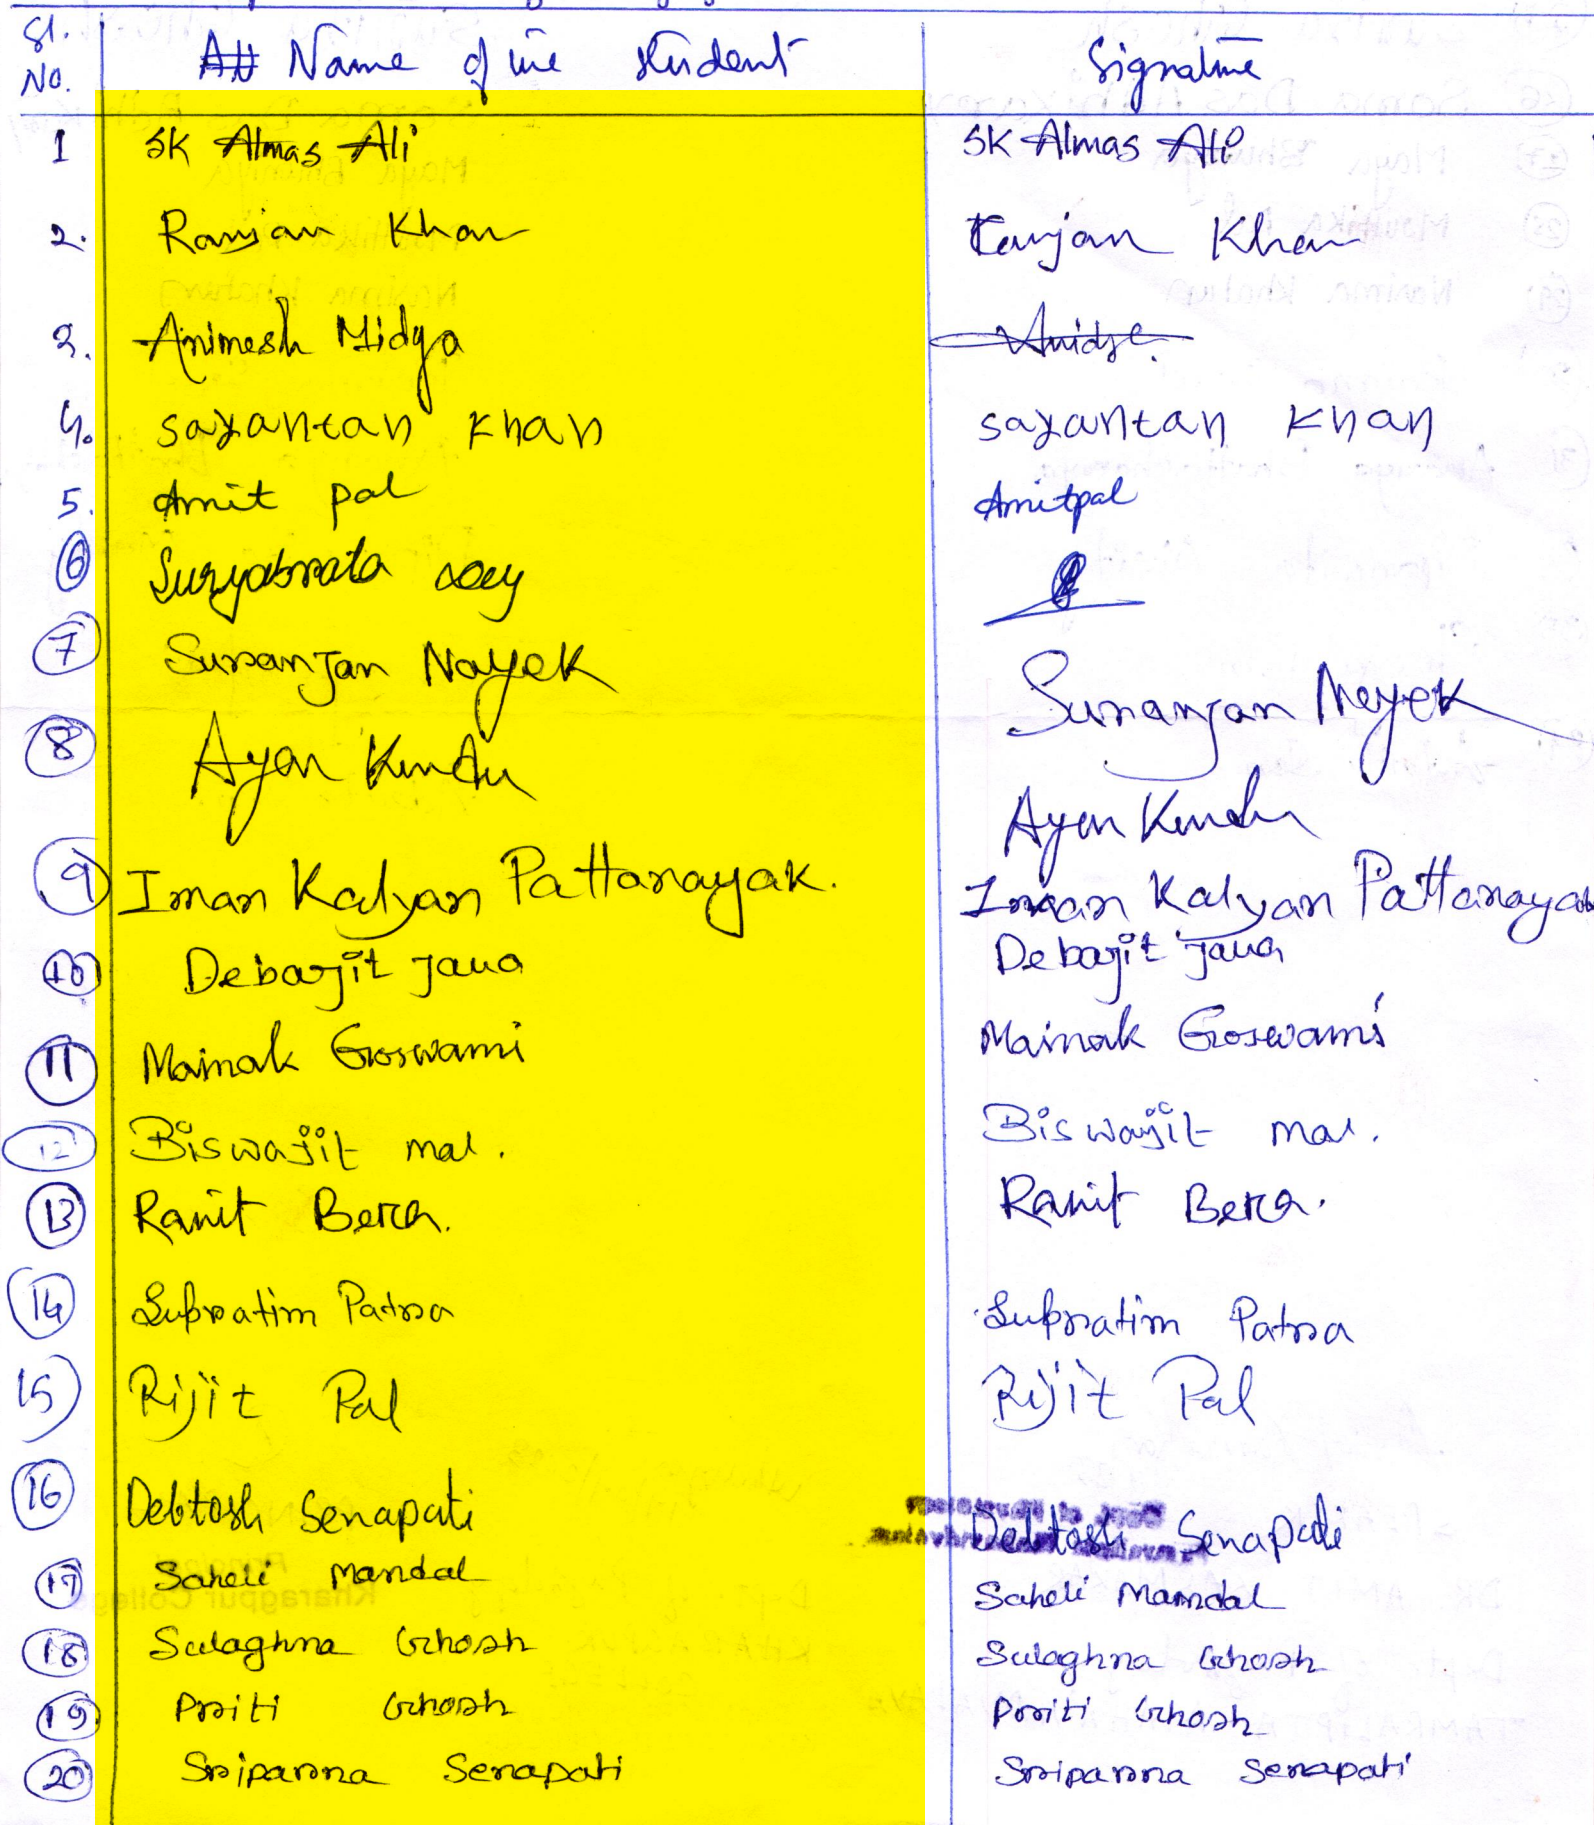 Sl. No. Name of the student Signature
1 SK Almas Ali SK Almas Ali
2. Ranjan Khan Ranjan Khan
3. Animesh Midya
4. sayantan khan sayantan khan
5. Amit pal Amit pal
6 Suryabrata
7 Suranjan Nayek Suranjan Nayek
8 Ayan Kundu Ayan Kundu
9 Iman Kalyan Pattanayak. Iman Kalyan Pattanayak
10 Debarjit Jana Debarjit Jana
11 Mainak Goswami Mainak Goswami
12 Biswajit mal. Biswajit mal.
13 Ranit Bera. Ranit Bera.
14 Supratim Patra Supratim Patra
15 Rijit Pal Rijit Pal
16 Debtosh Senapati Debtosh Senapati
17 Saheli Mandal Saheli Mandal
18 Sulaghna Ghosh Sulaghna Ghosh
19 Priti Ghosh Priti Ghosh
20 Sriparna Senapati Sriparna Senapati